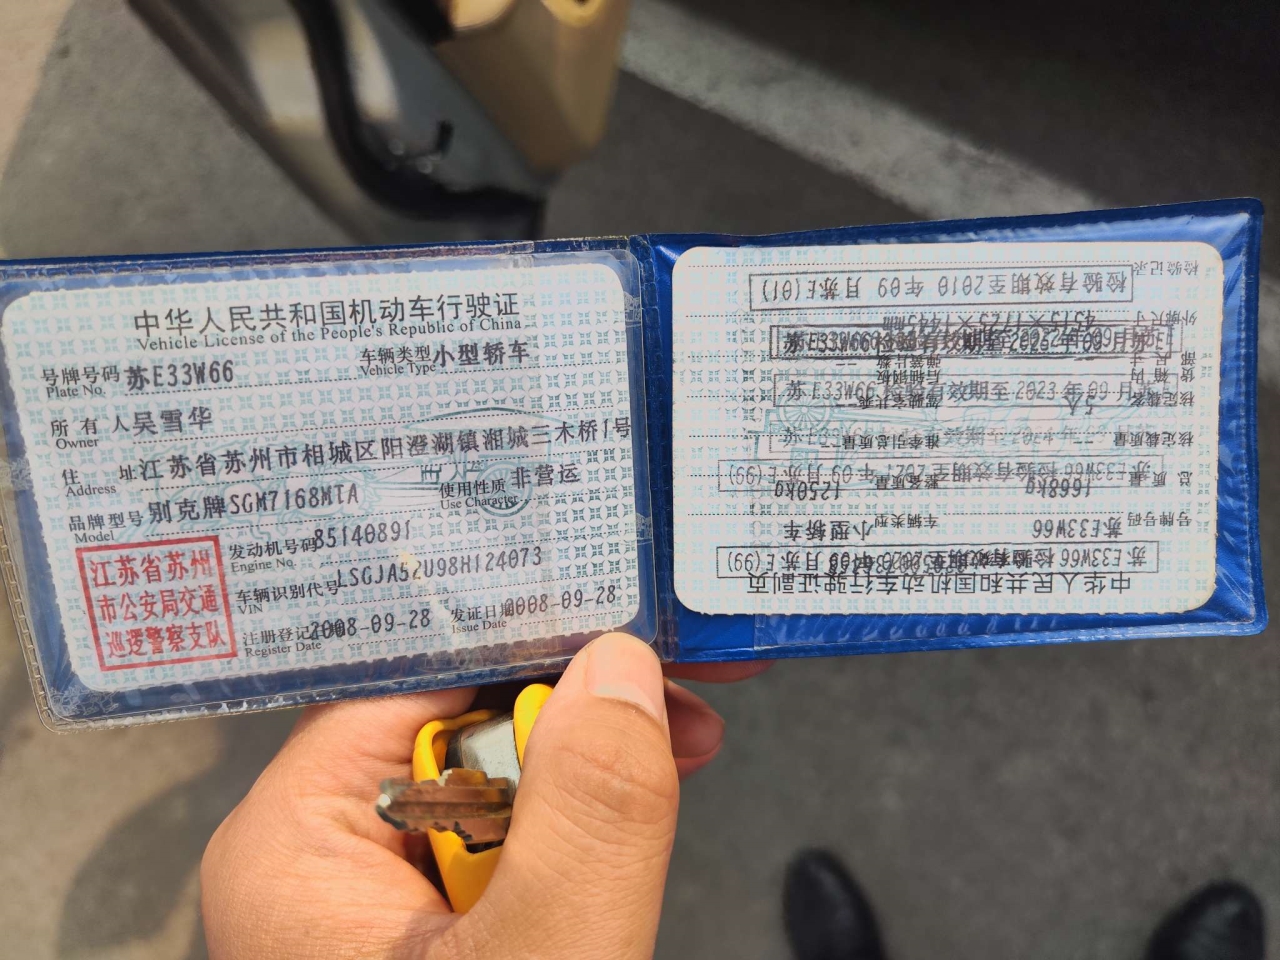 中华人民共和国机动车行驶证
Vehicle License of the People's Republic of China
号牌号码 苏E33W66 车辆类型 小型轿车
Plate No. Vehicle Type
所有人 吴雪华
Owner
住址 江苏省苏州市相城区阳澄湖镇湘城三木桥1号
Address
品牌型号 别克牌SGM7168MTA 使用性质 非营运
Model Use Character
发动机号码 85140891
Engine No.
车辆识别代号 LSGJA52U98H124073
VIN
注册登记 2008-09-28 发证日期 2008-09-28
Register Date Issue Date
江苏省苏州
市公安局交通
巡逻警察支队
中华人民共和国机动车行驶证副页
苏E33W66 检验有效期至 09月苏E(99)
号牌号码 苏E33W66 车辆类型 小型轿车
总质量 1668kg 整备质量 1250kg
苏E33W66 检验有效期至 年09月苏E(99)
核定载质量 准牵引总质量
核定载客 5人
苏E33W66 检验有效期至2023年09月
外廓尺寸 4515×1725×1445mm
检验记录
检验有效期至2010年09月苏E(01)